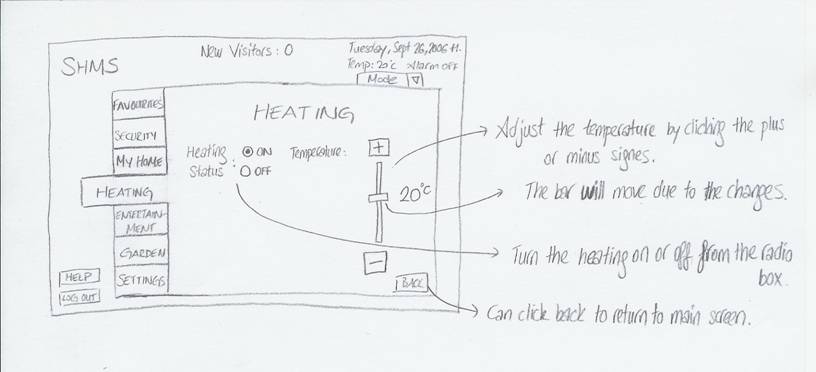 New Visitors: 0
Tuesday, Sept 26, 2006
SHMS
Temp: 20°C Alarm OFF
Mode
FAVOURITES
SECURITY
MY HOME
HEATING
ENTERTAIN-
MENT
GARDEN
SETTINGS
HELP
LOG OUT
HEATING
Heating
Status :
ON
OFF
Temperature:
+
20°C
−
BACK
Adjust the temperature by clicking the plus
or minus signes.
The bar will move due to the changes.
Turn the heating on or off from the radio
box.
Can click back to return to main screen.